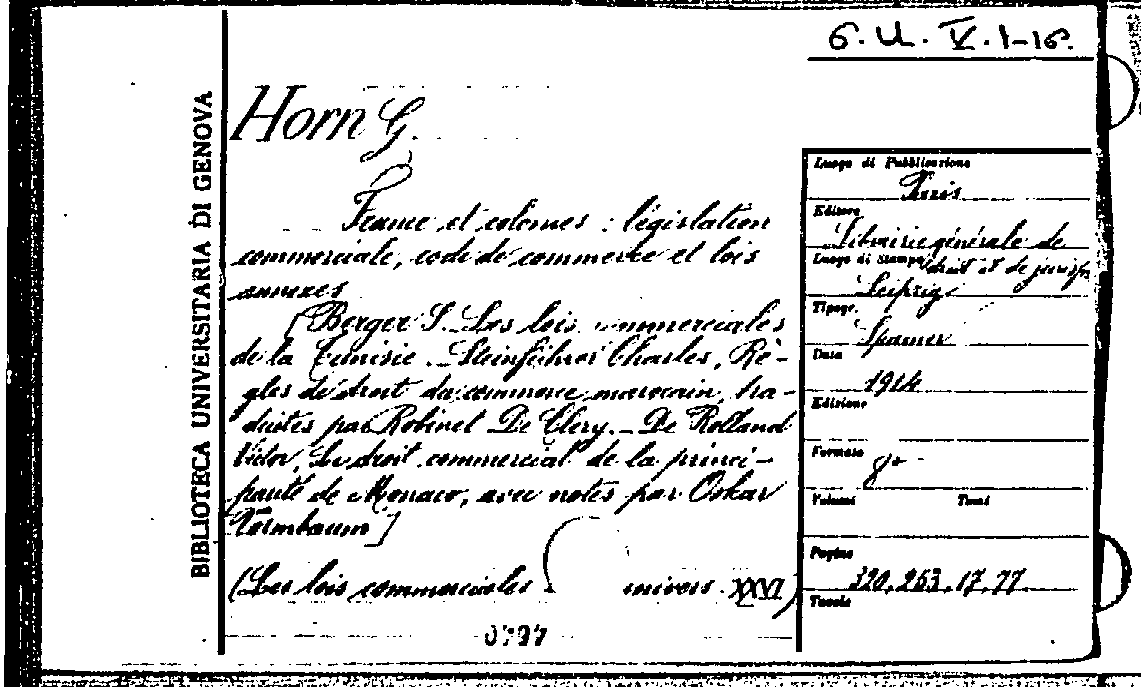 6. U. V. 1-16.
BIBLIOTECA UNIVERSITARIA DI GENOVA
Horn G.
France et colonies : législation
commerciale, code de commerce et lois
annexes
[Berger S. Les lois commerciales
de la Tunisie. _ Steinführer Charles, Rè-
gles de droit du commerce marocain, tra-
duites par Robinet De Clery. _ De Rolland
Victor, Le droit commercial de la princi-
pauté de Monaco, avec notes par Oskar
]
(Les lois commerciales univers XXVI)
0797
Luogo di Pubblicazione
Paris
Editore
Librairie générale de
droit et de jurispr
Luogo di Stampa
Leipzig
Tipogr.
Spamer
Data
1914
Edizione
Formato
8º
Volumi Tomi
Pagine
320, 263, 17, 77
Tavole